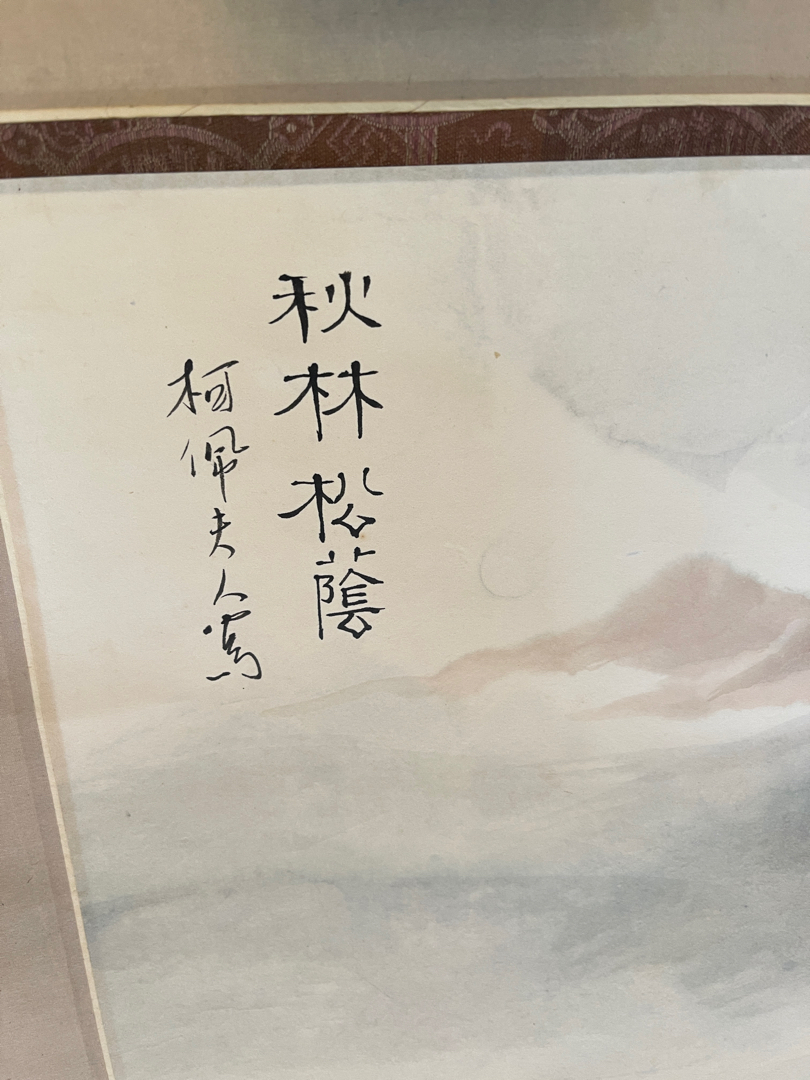 秋林松蔭
柯佩夫人寫